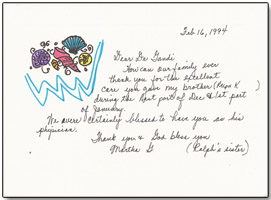 Feb 16, 1994
Dear Dr Gandi
How can our family ever
thank you for the excellent
care you gave my brother (Ralph K )
during the last part of Dec & 1st part
of January.
We were certainly blessed to have you as his
physician.
Thank you & God bless you
Martha G (Ralph's sister)